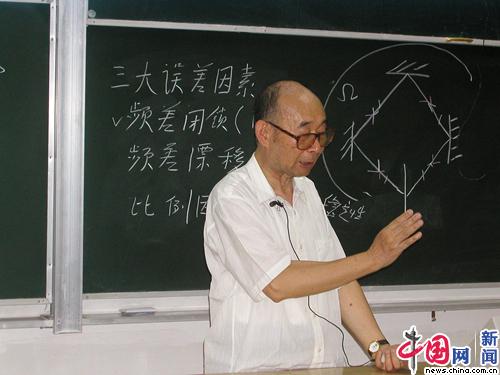 三大误差因素
√频差闭锁(
频差漂移
比例因
Ω
中国网 新闻
news.china.com.cn